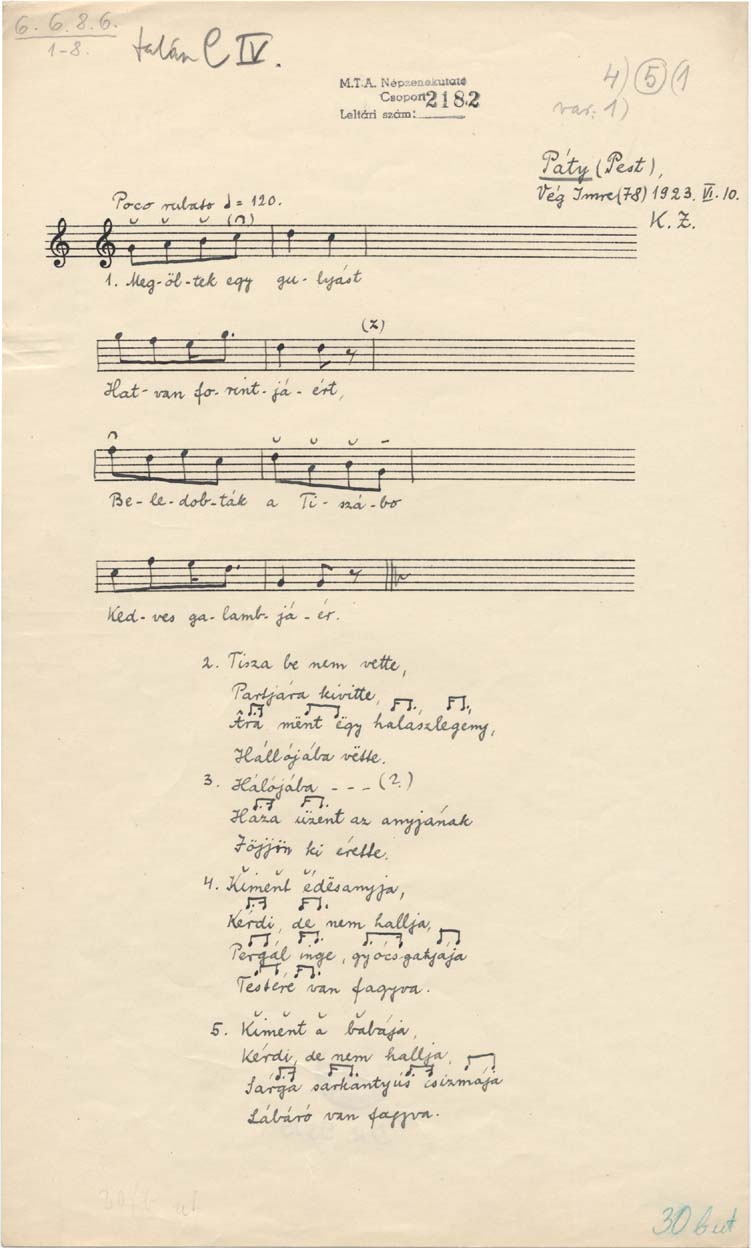 6. 6. 8. 6.
1-8.
talán C IV.
M.T.A. Népzenekutató
Csoport 2182
Leltári szám:
4) 5 (1
var: 1)
Páty (Pest),
Vég Imre (78) 1923. VI. 10.
K. Z.
Poco rubato = 120.
1. Meg-öl-tek egy gu-lyást
(z)
Hat-van fo-rint-já-ért,
Be-le-dob-ták a Ti-szá-bo
Ked-ves ga-lamb-já-ér.
2. Tisza be nem vette,
Partjára kivitte,
Ara mënt ëgy halaszlegeny,
Hállójába vëtte.
3. Hálójába - - - (2.)
Haza üzent az anyjának
Jöjjön ki érette.
4. Kiment édësanyja,
Kérdi, de nem hallja,
Pergál inge, gyócsgatyája
Testére van fagyva.
5. Kimënt a babája,
Kérdi, de nem hallja,
Sárga sarkantyús csizmája
Lábáró van fagyva.
30